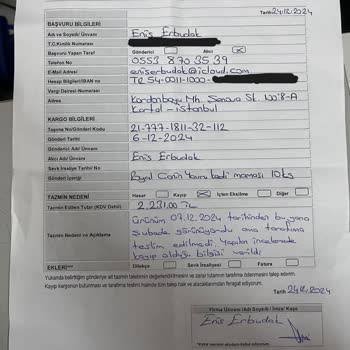 Tarih 24.12.2024
BAŞVURU BİLGİLERİ
Adı ve Soyadı/ Ünvanı Enis Erbudak
T.C.Kimlik Numarası
Başvuru Yapan Taraf Gönderici Alıcı X
Telefon No 0553 870 35 39
E-Mail Adresi eniserbudak@icloud.com
Hesap Bilgileri/IBAN no TR 54-0011-1000-
Vergi Dairesi-Numarası
Adres Kordonboyu Mh. St. No:8-A
Kartal - istanbul
KARGO BİLGİLERİ
Taşıma No/Gönderi Kodu 21-777-1811-32-112
Gönderi Tarihi 6-12-2024
Gönderici Adı/ Ünvanı
Alıcı Adı/ Ünvanı Enis Erbudak
Sevk İrsaliye Tarihi/ No
Gönderi İçeriği Royal Canin Yavru kedi maması 10kg
TAZMİN NEDENİ Hasar Kayıp X İçten Eksilme Diğer
Tazmin Edilen Tutar (KDV Dahil) 2,231.00 TL
Tazmin Nedeni ve Açıklama ürünüm 07.12.2024 tarihinden bu yana
şubede görünüyordu ama tarafıma
teslim edilmedi. Yapılan incelemede
kayıp olduğu bilgisi verildi
EKLER(*** Dilekçe Sevk İrsaliyesi Fatura
Yukarıda belirttiğim gönderiye ait tazmin talebimin değerlendirilmesini ve zarar tutarının tarafıma ödenmesini talep ederim.
Kayıp kargonun bulunması ve tarafıma teslimi halinde tüm talep hak ve alacaklarımdan feragat ediyorum.
Tarih 24.12.2024
Firma Ünvanı /Adı Soyadı/ İmza/ Kaşe
Enis Erbudak